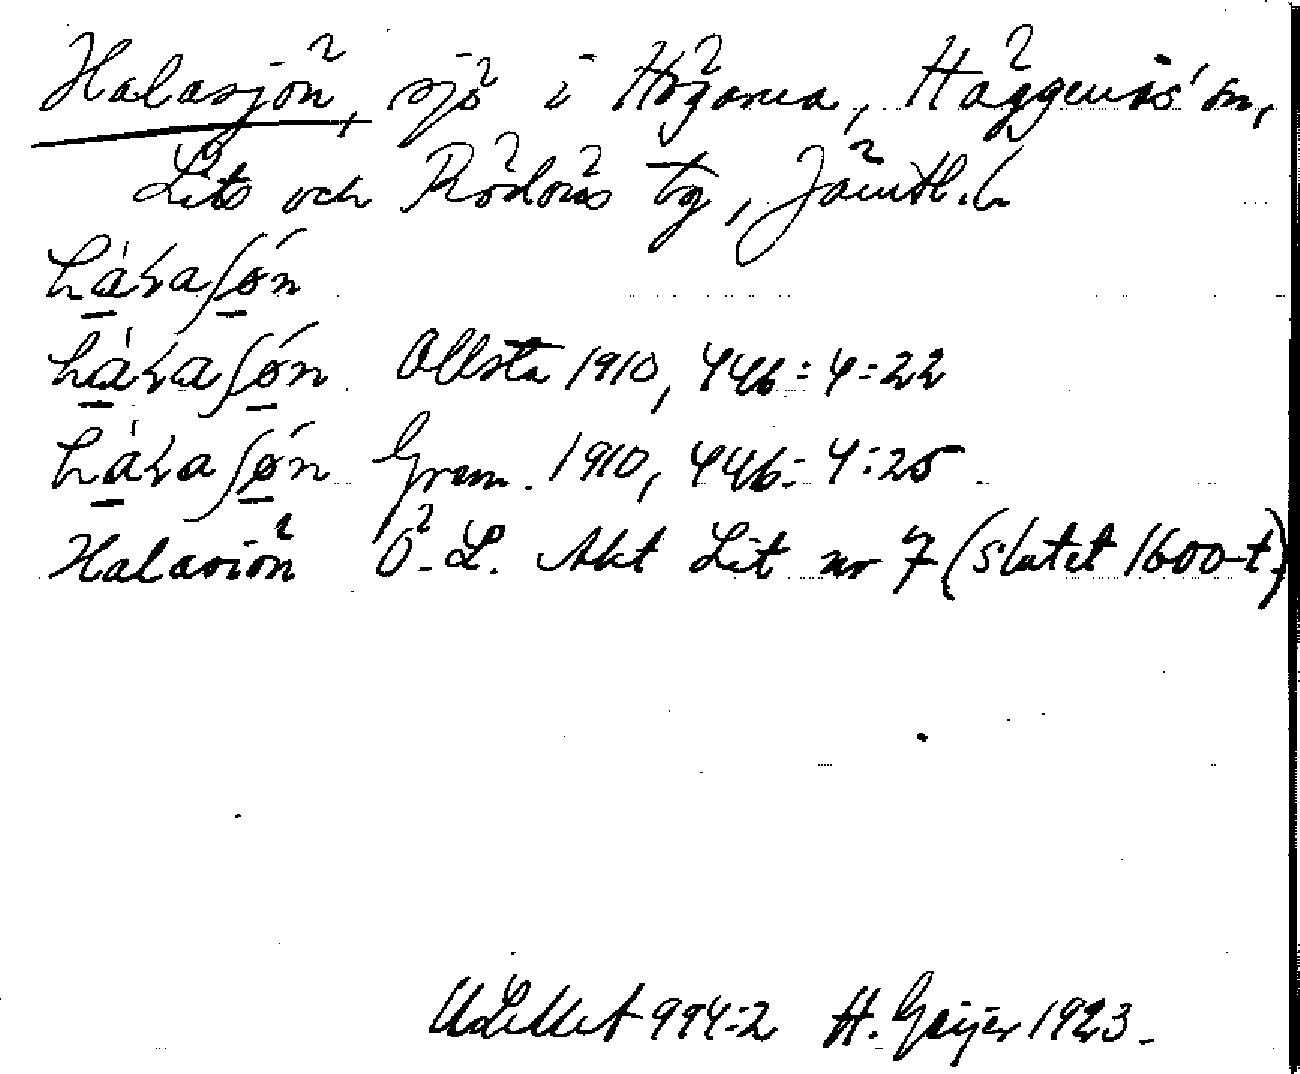 Halasjön, sjö i Högarna, Häggenås' sn,
Lits och Rödöns tg, Jämtl. l.
hàɽaʃøn
hàɽaʃøn Ollsta 1910, 446:4:22
hàɽaʃøn Gren. 1910, 446:4:25
Halasiön Ö.-L. Akt Lit nr 7 (slutet 1600-t.)
994:2 H. Geijer 1923.